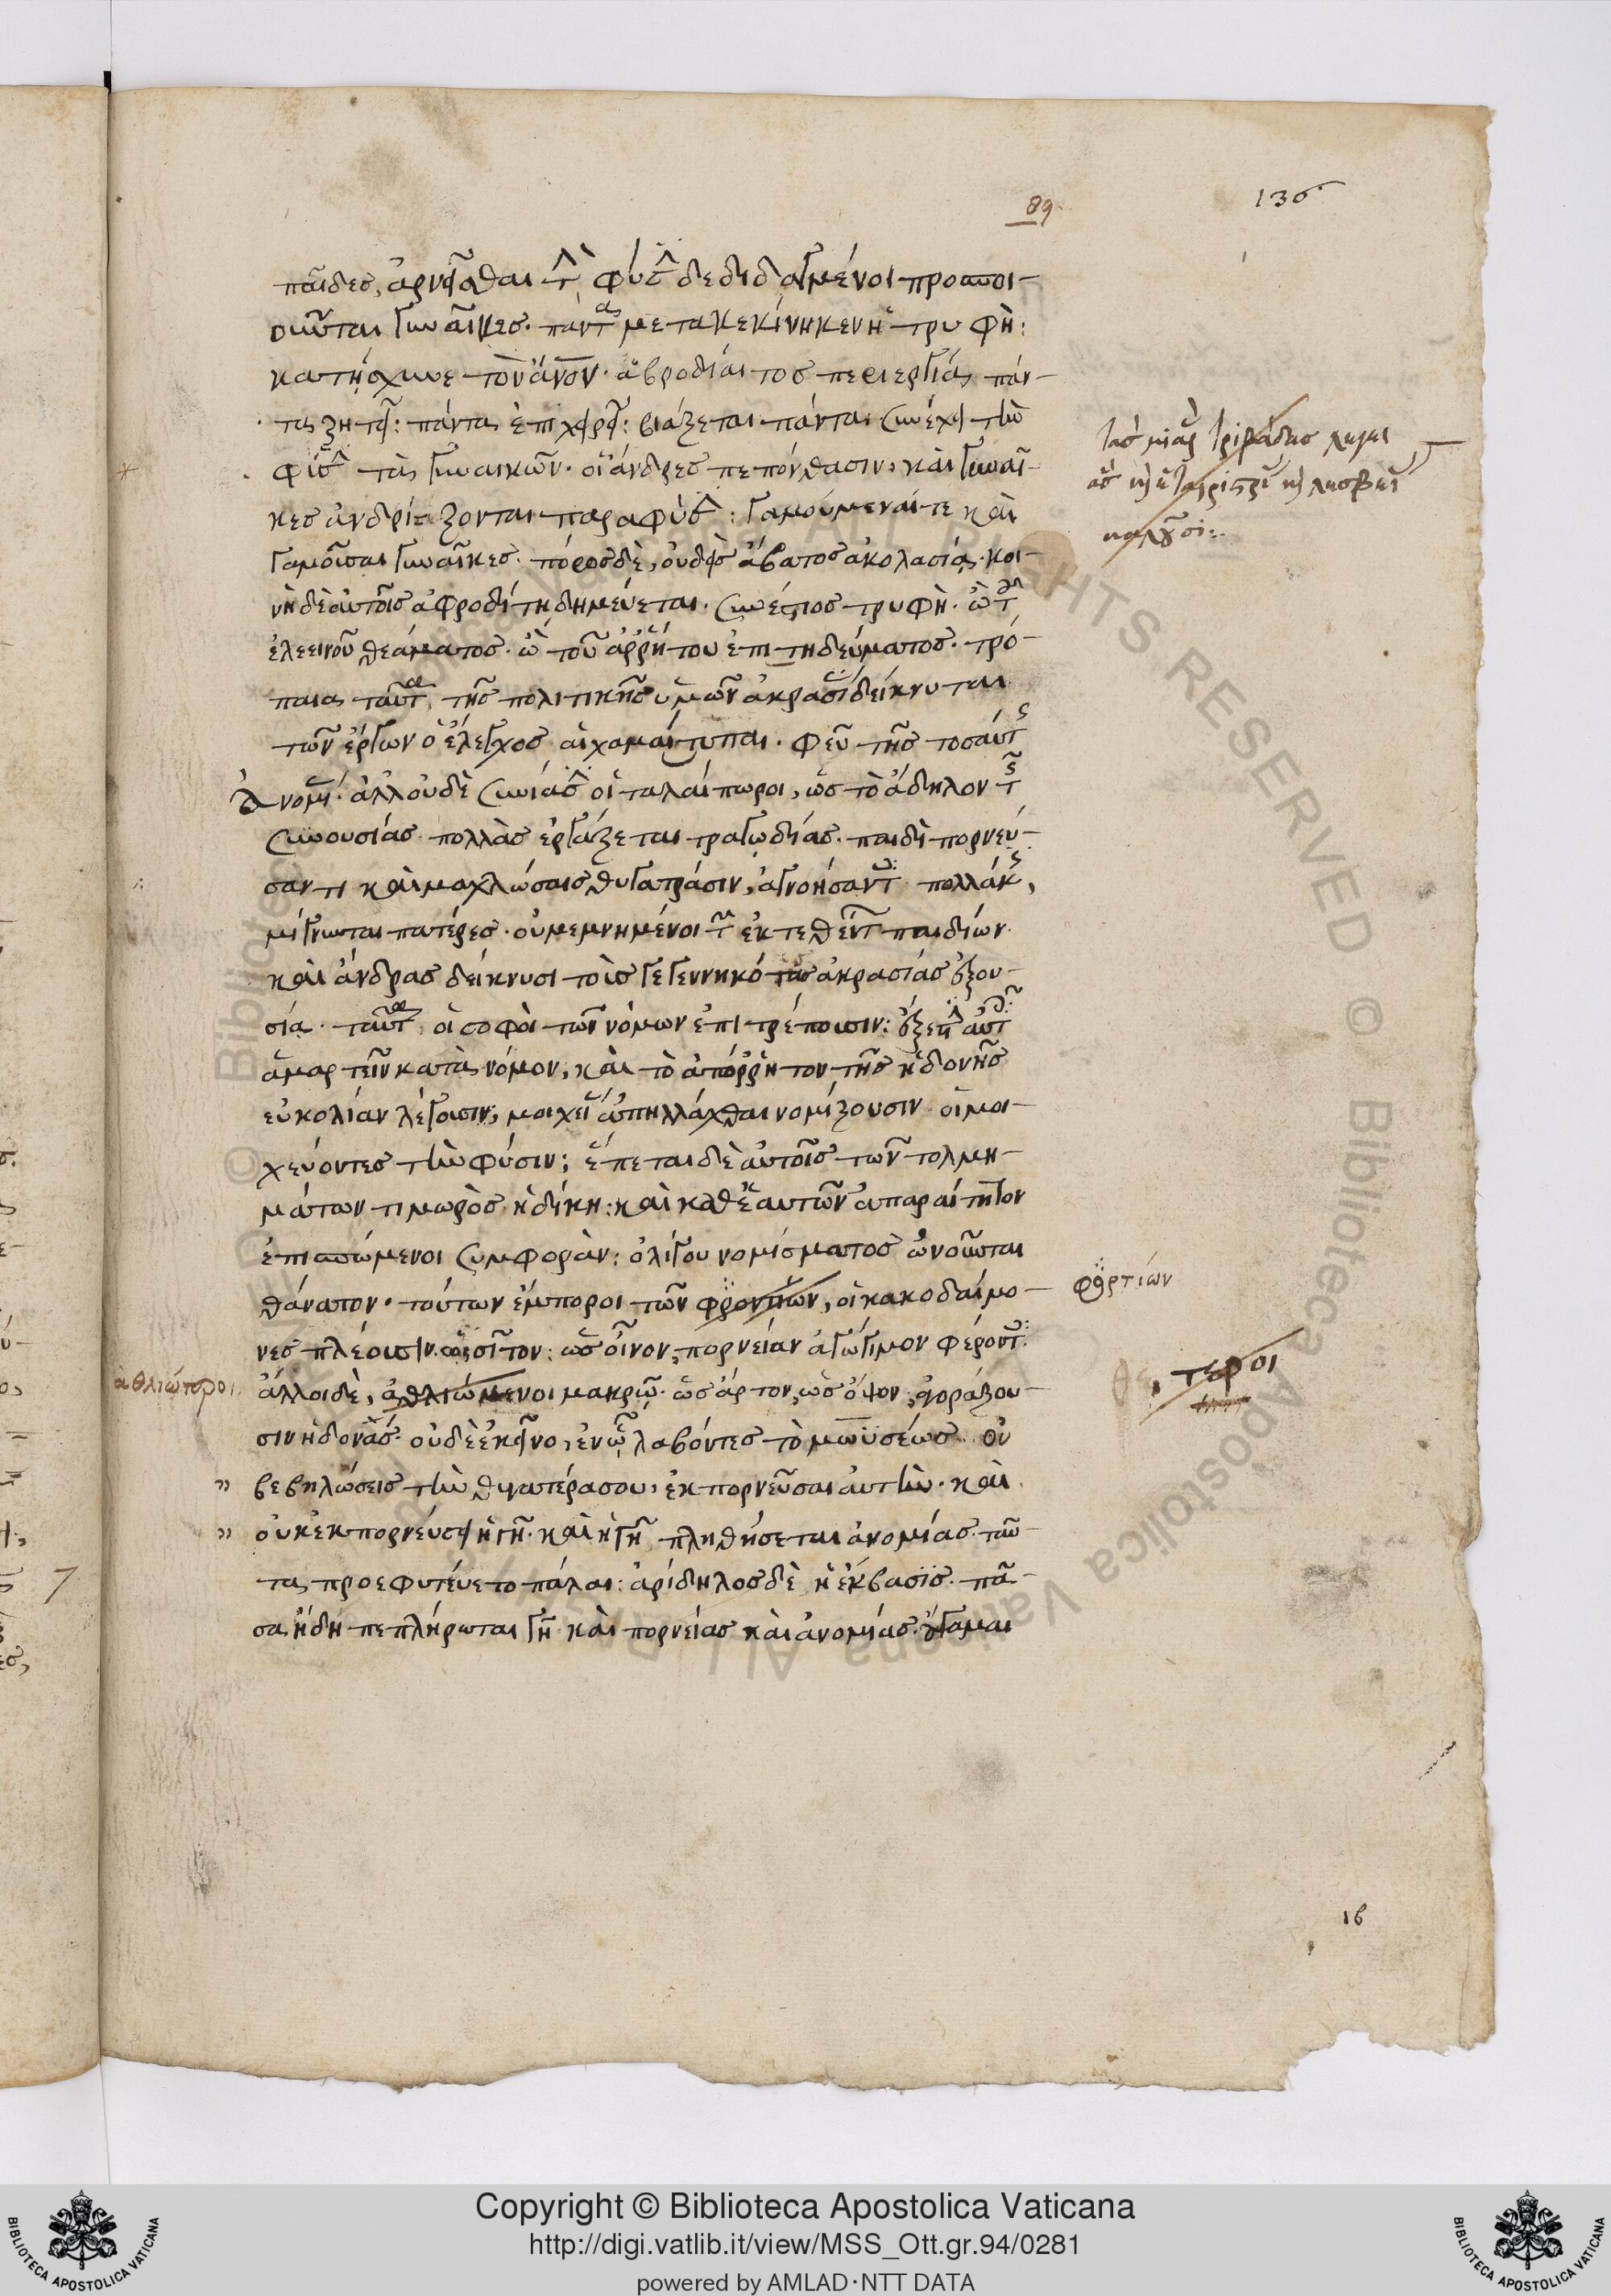 89
136
παῖδες, ἀρνεῖσθαι τὴν φύσιν δεδιδαγμένοι προσποι-
οῦνται γυναῖκες. πάντα μετακεκίνηκεν ἡ τρυφὴ:
κατήσχυνε τὸν ἄνον. ἁβροδίαιτος περιεργία, πάν-
τα ζητεῖ: πάντα ἐπιχειρεῖ: βιάζεται πάντα. συνέχει τὴν
φύσιν τὰ γυναικῶν. οἱ ἄνδρες πεπόνθασιν, καὶ γυναῖ-
κες ἀνδρίζονται παρα φύσιν: γαμούμεναί τε καὶ
γαμοῦσαι γυναῖκες. πόρος δὲ, οὐδεὶς ἄβατος ἀκολασίᾳ. κοι-
νὴ δὲ αὐτοῖς ἀφροδίτη δημεύεται. συνέστιος τρυφὴ. ὢ τοῦ
ἐλεεινοῦ θεάματος. ὢ τοῦ ἀρρήτου ἐπιτηδεύματος. τρό-
παια ταῦτα τῆς πολιτικῆς ὑμῶν ἀκρασίας δείκνυται.
τῶν ἔργων ὁ ἔλεγχος αἱ χαμαιτύπαι. φεῦ τῆς τοσαύτης
ἀνομίας. ἀλλ οὐδὲ συνιᾶσιν οἱ ταλαίπωροι, ὡς τὸ ἄδηλον τῆς
συνουσίας πολλὰς ἐργάζεται τραγῳδίας. παιδὶ πορνεύ-
σαντι καὶ μαχλώσαις θυγατράσιν, ἀγνοήσαντες πολλάκις,
μίγνυνται πατέρες. οὐ μεμνημένοι τῶν ἐκτεθέντων παιδίων.
καὶ ἄνδρας δείκνυσι τοὺς γεγεννηκότας ἀκρασίας ἐξου-
σία. ταῦτα οἱ σοφοὶ τῶν νόμων ἐπιτρέπουσιν: ἔξεστιν αὐτοῖς
ἁμαρτεῖν κατὰ νόμον, καὶ τὸ ἀπόρρητον τῆς ἡδονῆς
εὐκολίαν λέγουσιν, μοιχείας ἀπηλλάχθαι νομίζουσιν οἱ μοι-
χεύοντες τὴν φύσιν; ἕπεται δὲ αὐτοῖς τῶν τολμη-
μάτων τιμωρὸς ἡ δίκη: καὶ καθ ἑαυτῶν ἀπαραίτητον
ἐπισπώμενοι συμφορὰν: ὀλίγου νομίσματος ὠνοῦνται
θάνατον. τούτων ἔμποροι τῶν φροντιῶν, οἱ κακοδαίμο-
φορτίων
νες πλέουσιν. ὡς σῖτον: ὡς οἶνον, πορνείαν ἀγώγιμον φέροντες.
ἀθλιώτεροι
ἄλλοι δὲ, ἀθλιώμενοι μακρῷ. ὡς ἄρτον, ὡς ὄψον, ἀγοράζου-
τεροι
σιν ἡδονὰς. οὐδὲ ἐκεῖνο, ἐν νῷ λαβόντες τὸ μωϋσέως. οὐ
" βεβηλώσεις τὴν θυγατέρα σου, ἐκπορνεῦσαι αὐτὴν. καὶ
" οὐκ ἐκπορνεύσει ἡ γῆ. καὶ ἡ γῆ πλησθήσεται ἀνομίας. ταῦ-
τα προεφητεύετο πάλαι: ἀρίδηλος δὲ ἡ ἔκβασις. πᾶ-
σα ἤδη πεπλήρωται γῆ καὶ πορνείας καὶ ἀνομίας. ἄγαμαι
16
© Biblioteca Apostolica Vaticana ALL RIGHTS RESERVED
Copyright © Biblioteca Apostolica Vaticana
http://digi.vatlib.it/view/MSS_Ott.gr.94/0281
powered by AMLAD·NTT DATA
BIBLIOTECA APOSTOLICA VATICANA
BIBLIOTECA APOSTOLICA VATICANA